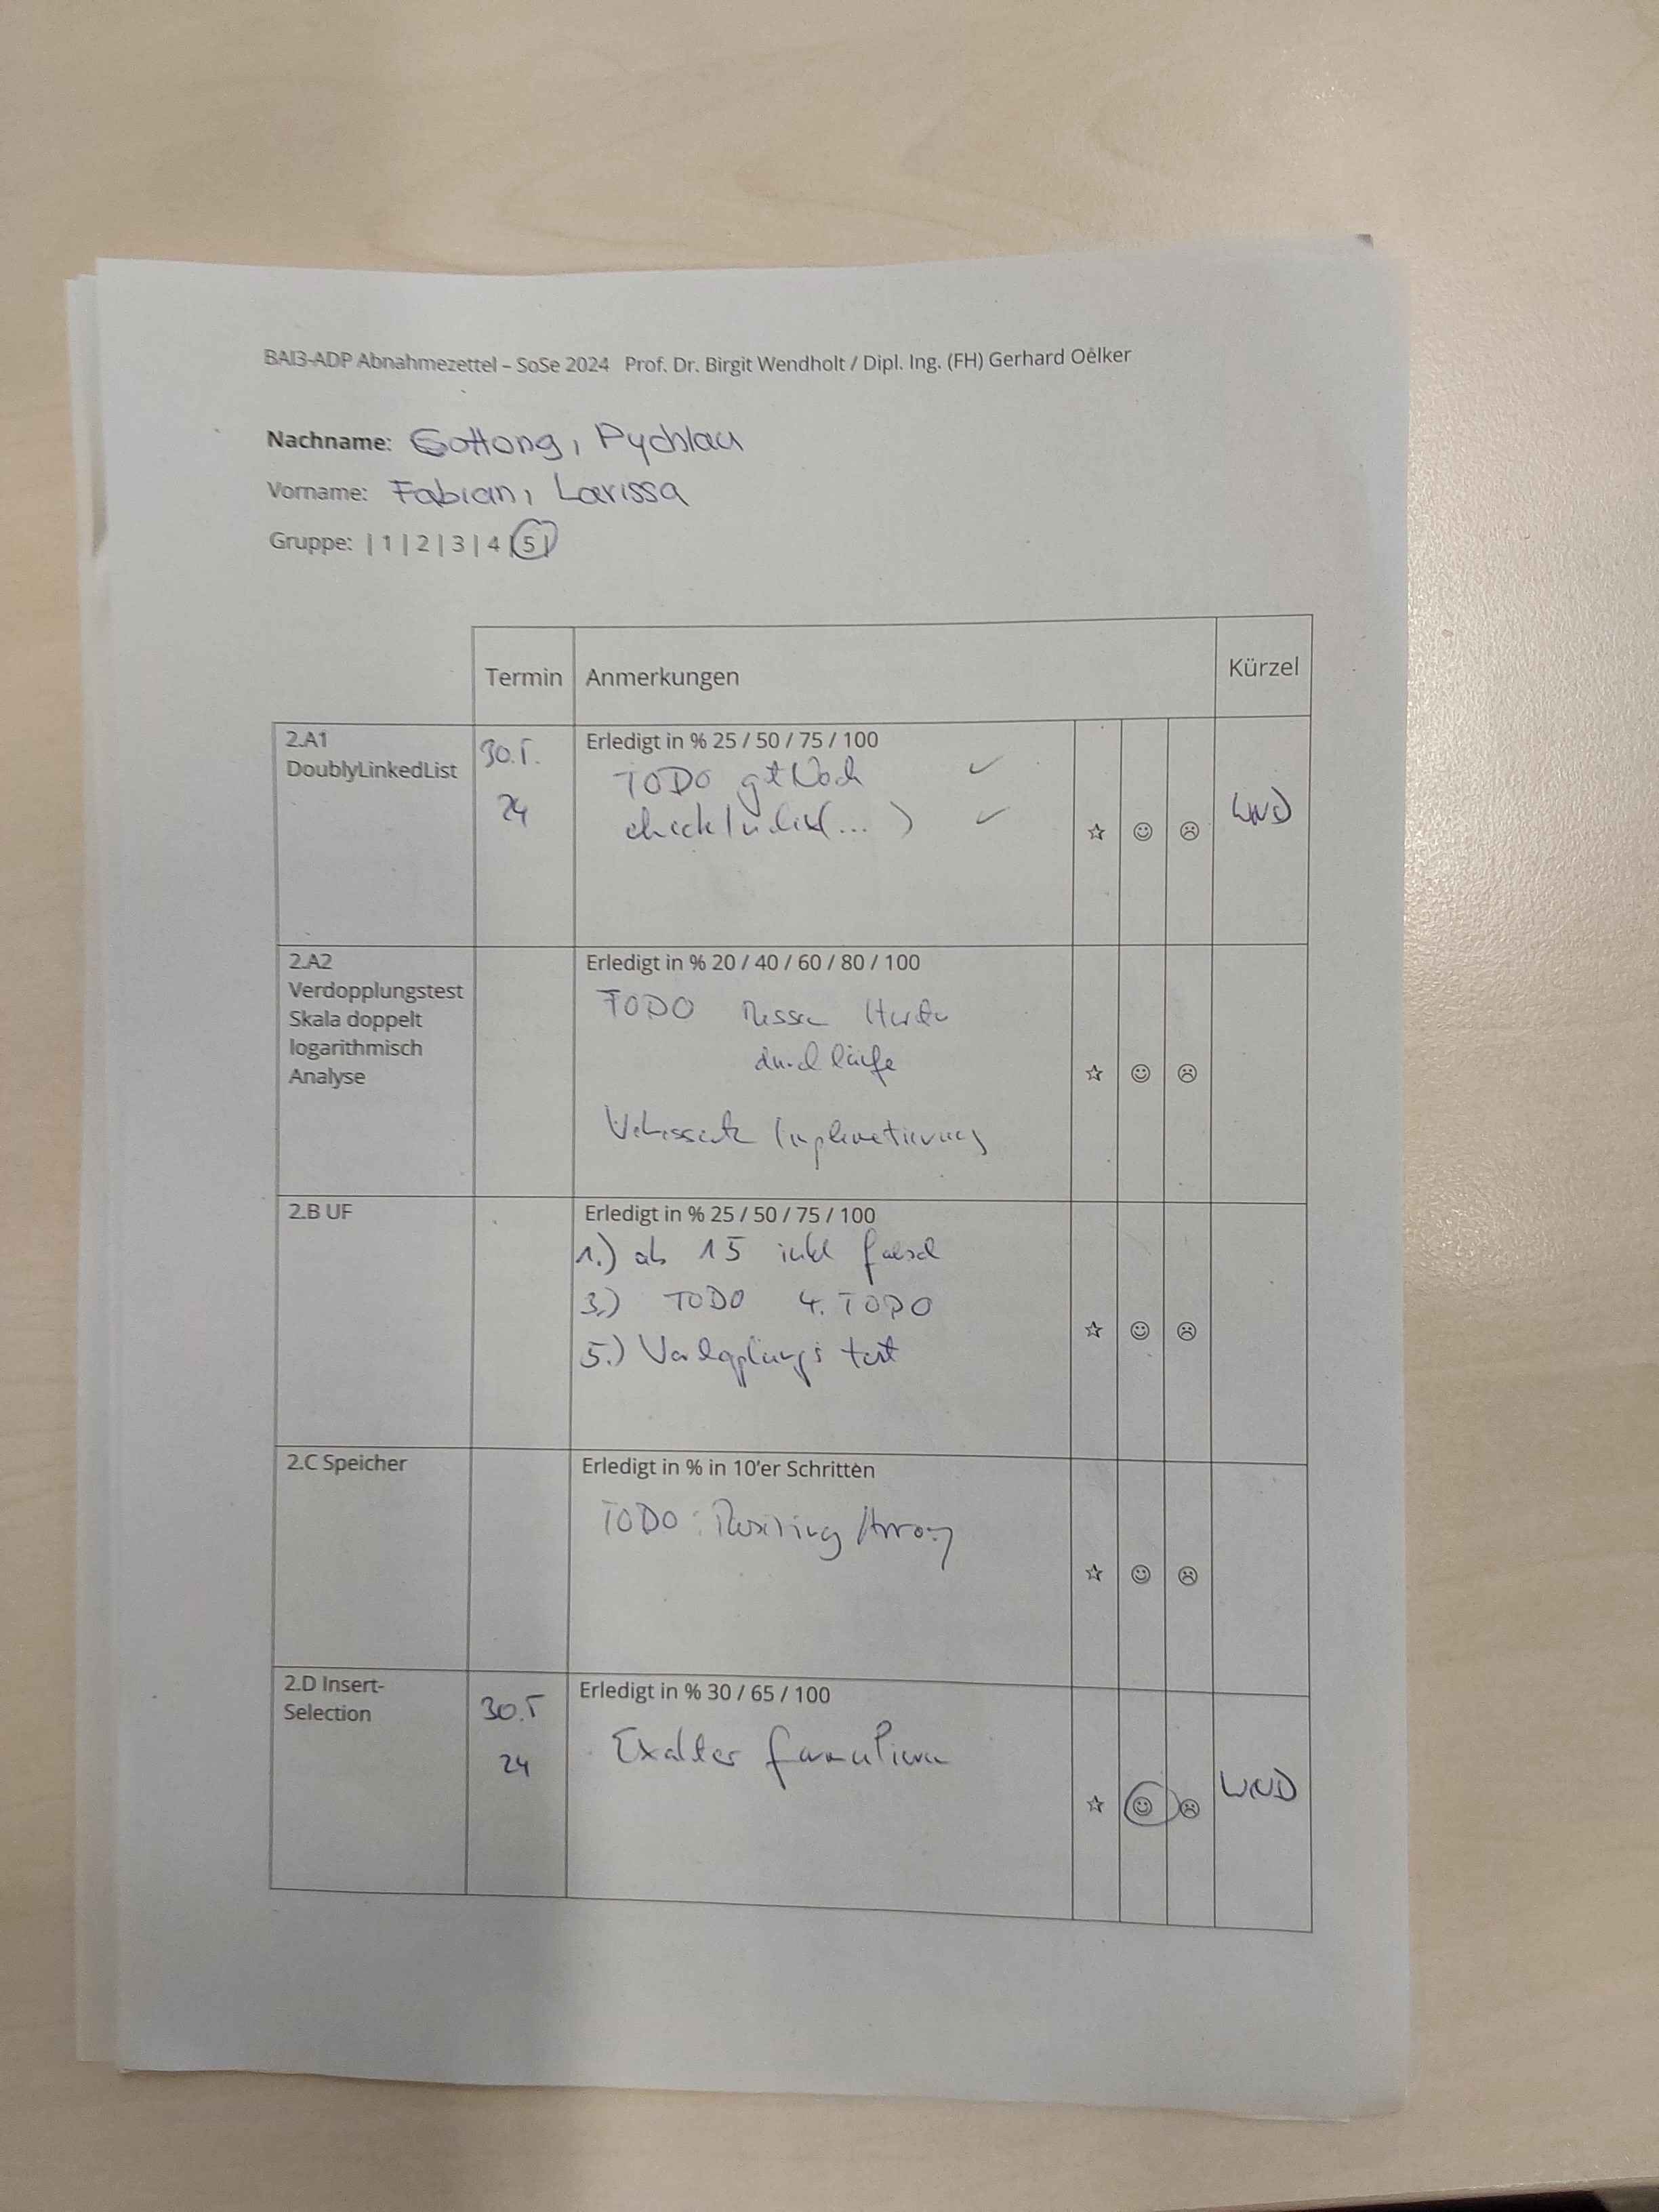 BAI3-ADP Abnahmezettel – SoSe 2024 Prof. Dr. Birgit Wendholt / Dipl. Ing. (FH) Gerhard Oelker
Nachname: Gottong, Pychlau
Vorname: Fabian, Larissa
Gruppe: | 1 | 2 | 3 | 4 | 5 |
Termin Anmerkungen Kürzel
2.A1
DoublyLinkedList
30.5.
24
Erledigt in % 25 / 50 / 75 / 100
TODO getNode ✓
checkInList(...) ✓
☆ ☺ ☹
WND
2.A2
Verdopplungstest
Skala doppelt
logarithmisch
Analyse
Erledigt in % 20 / 40 / 60 / 80 / 100
TODO Messen
durchläufe
Implementierung
☆ ☺ ☹
2.B UF
Erledigt in % 25 / 50 / 75 / 100
1.) ab 15 inkl falsch
3.) TODO 4. TODO
5.) Verdopplungstest
☆ ☺ ☹
2.C Speicher
Erledigt in % in 10'er Schritten
TODO: Resizing Array
☆ ☺ ☹
2.D Insert-
Selection
30.5
24
Erledigt in % 30 / 65 / 100
Exakter formulieren
☆ ☺ ☹
WND